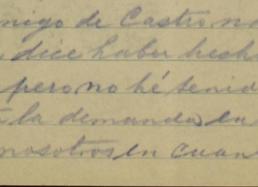 migo de Castro no
dice haber hech
pero no hé tenid
la demanda en
nosotros en cuan